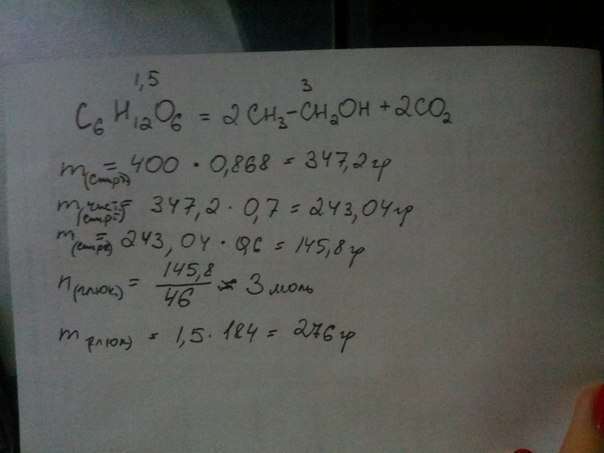 1,5 3
C₆H₁₂O₆ = 2CH₃-CH₂OH + 2CO₂
m(спирт) = 400 · 0,868 = 347,2 гр
m чист(спирт) = 347,2 · 0,7 = 243,04 гр
m(спирт) = 243,04 · 0,6 = 145,8 гр
n(глюк) = 145,8/46 ≈ 3 моль
m(глюк) = 1,5 · 184 = 276 гр